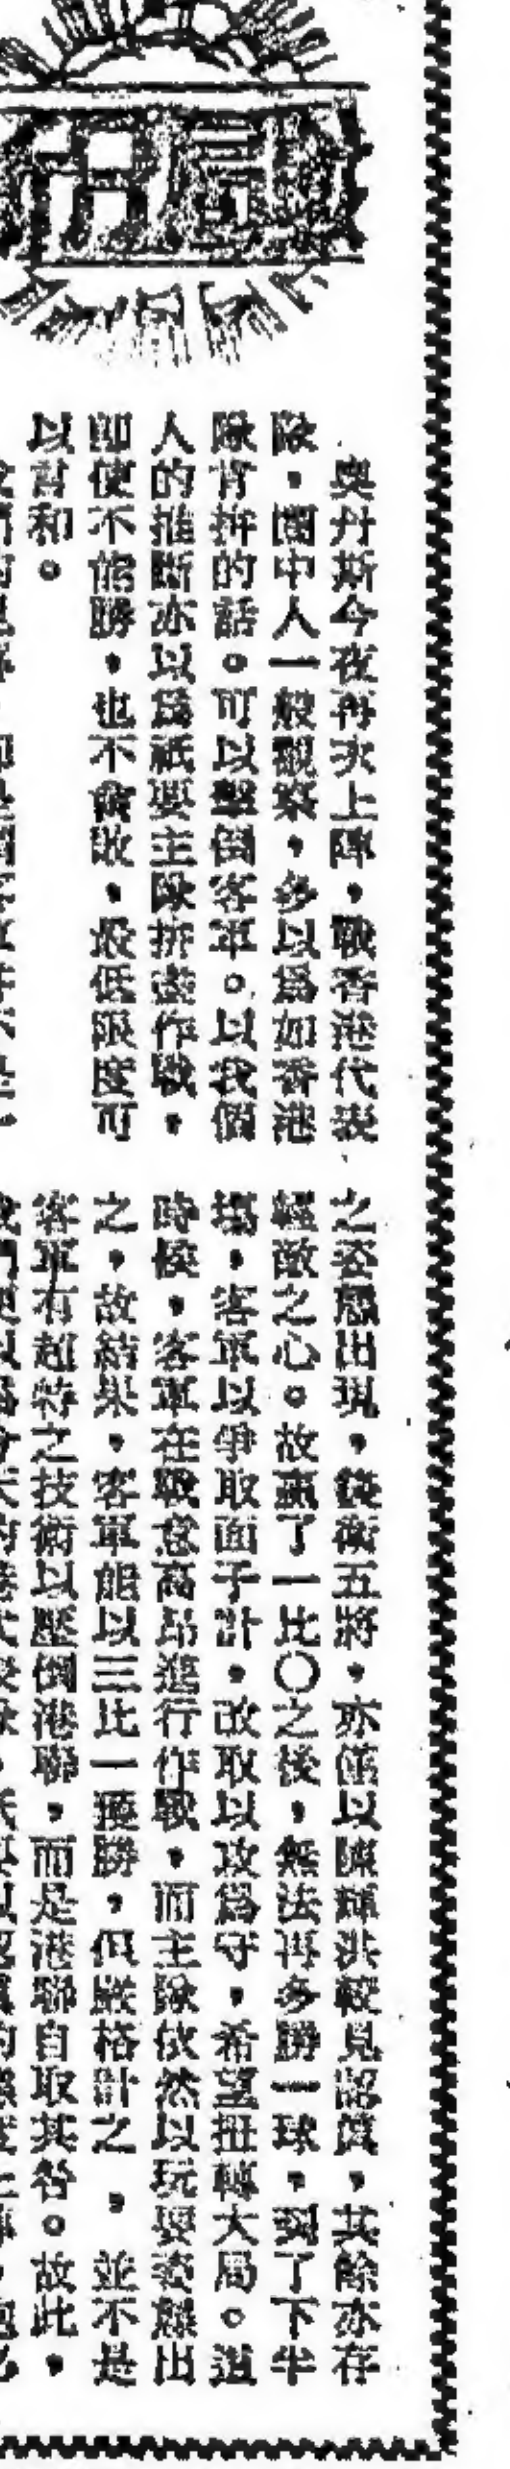 奧丹斯今夜再次上陣，戰香港代表
隊，圈中人一般觀察，多以爲如香港
隊肯拚的話。可以擊倒客軍。以我個
人的推斷亦以爲祇要主隊拚盡作戰，
即使不能勝，也不會敗，最低限度可
以言和。
之姿態出現，鋒衛五將，亦僅以陳輝洪較見認眞，其餘亦存
輕敵之心。故贏了一比〇之後，無法再多勝一球，到了下半
場，客軍以爭取面子計，改取以攻爲守，希望扭轉大局。這
時候，客軍在戰意高昂進行作戰，而主隊依然以玩耍姿態出
之，故結果，客軍能以三比一獲勝，但嚴格計之，並不是
客軍有超特之技術以壓倒港聯，而是港聯自取其咎。故此，